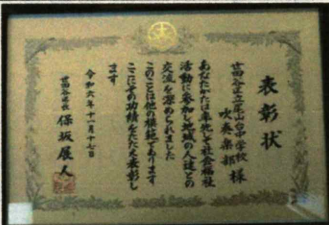 表彰状
世田谷区立芦花中学校
吹奏楽部様
あなたがたは率先して社会福祉
活動に参加し地域の人達との
交流を深められました
このことは他の模範であります
ここにその功績をたたえ表彰し
ます
令和六年十一月十七日
世田谷区長
保坂展人